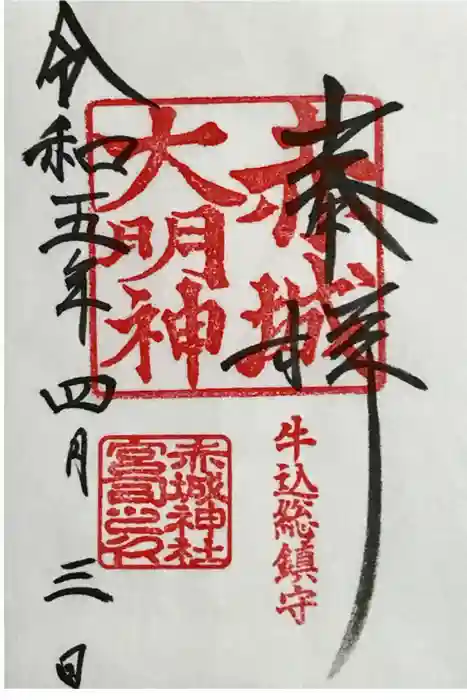 奉拝
赤城
大明神
牛込総鎮守
赤城神社
宮司之印
令和五年四月三日